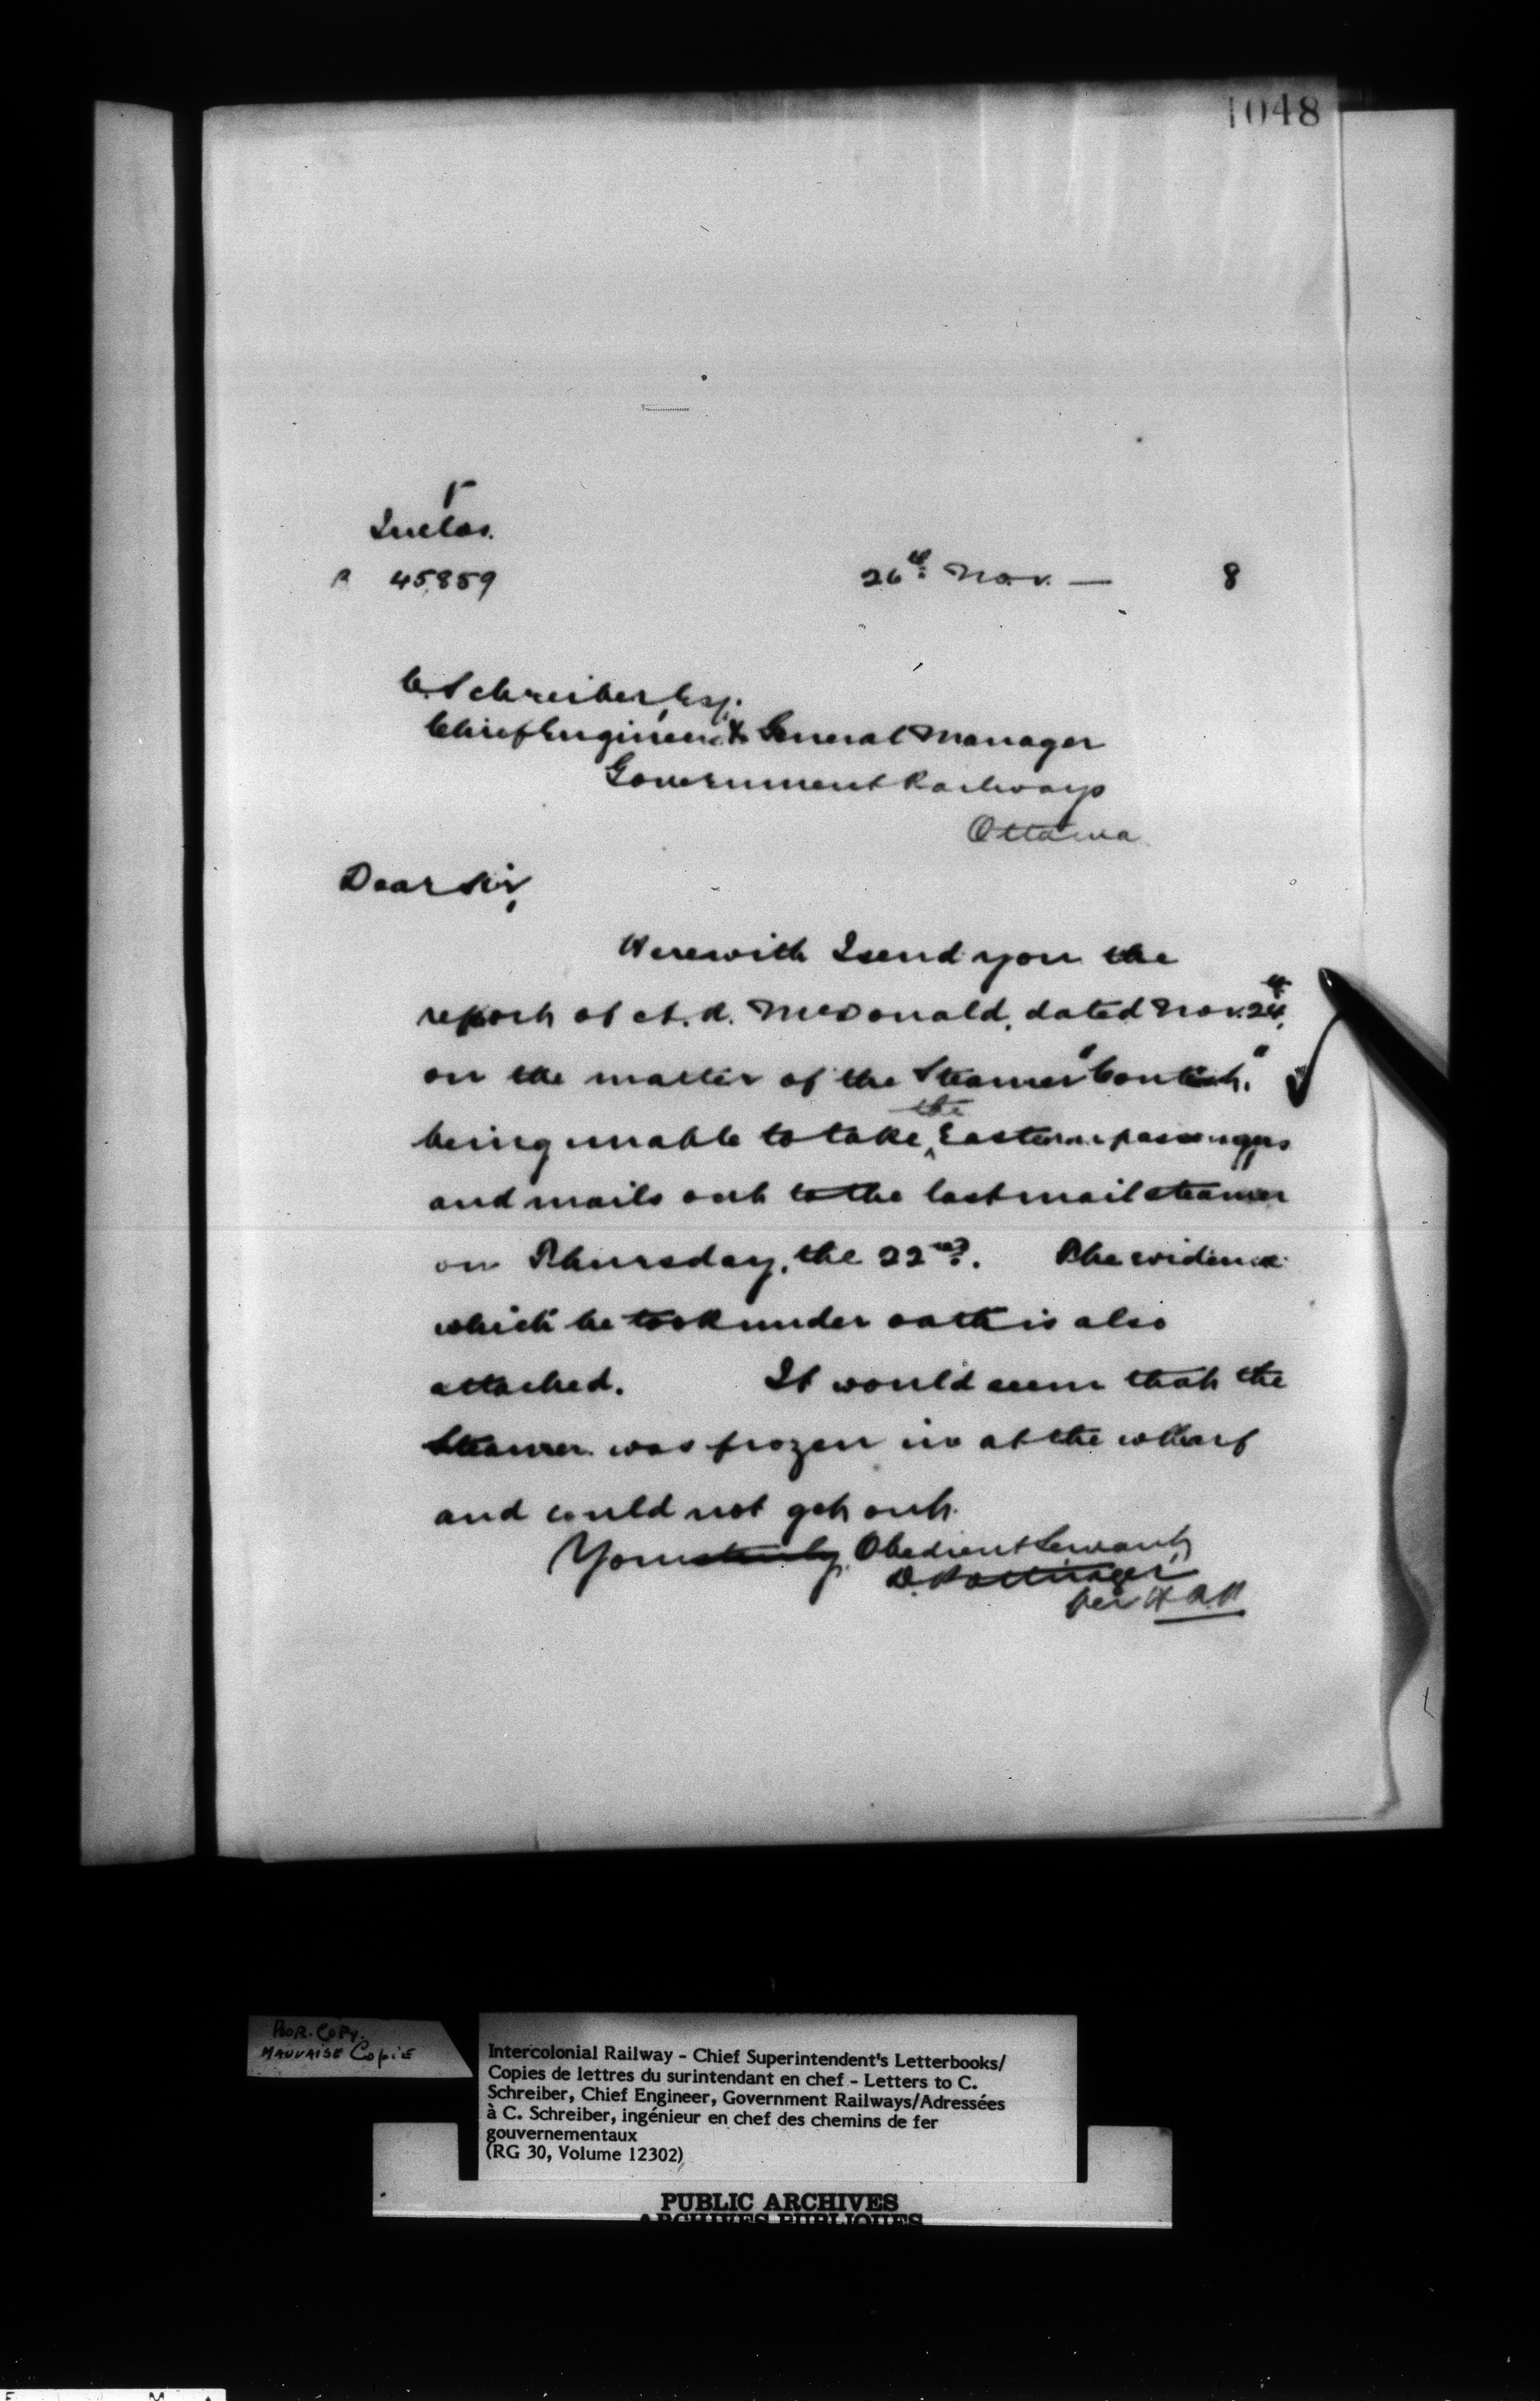 1048
Inclos.
45859
26th Nov. — 8
C. Schreiber, Esq.
Chief Engineer & General Manager
Government Railways
Ottawa
Dear Sir,
Herewith I send you the
report of A. R. McDonald, dated Nov. 24th,
on the matter of the Steamer "Contest,"
being unable to take the Eastern passengers
and mails out to the last mail steamer
on Thursday, the 22nd. The evidence
which he took under oath is also
attached. It would seem that the
Steamer was frozen in at the wharf
and could not get out.
Yours truly, Obedient Servant,
D. Pottinger
per
POOR. COPY.
MAUVAISE COPIE
Intercolonial Railway - Chief Superintendent's Letterbooks/
Copies de lettres du surintendant en chef - Letters to C.
Schreiber, Chief Engineer, Government Railways/Adressées
à C. Schreiber, ingénieur en chef des chemins de fer
gouvernementaux
(RG 30, Volume 12302)
PUBLIC ARCHIVES
ARCHIVES PUBLIQUES